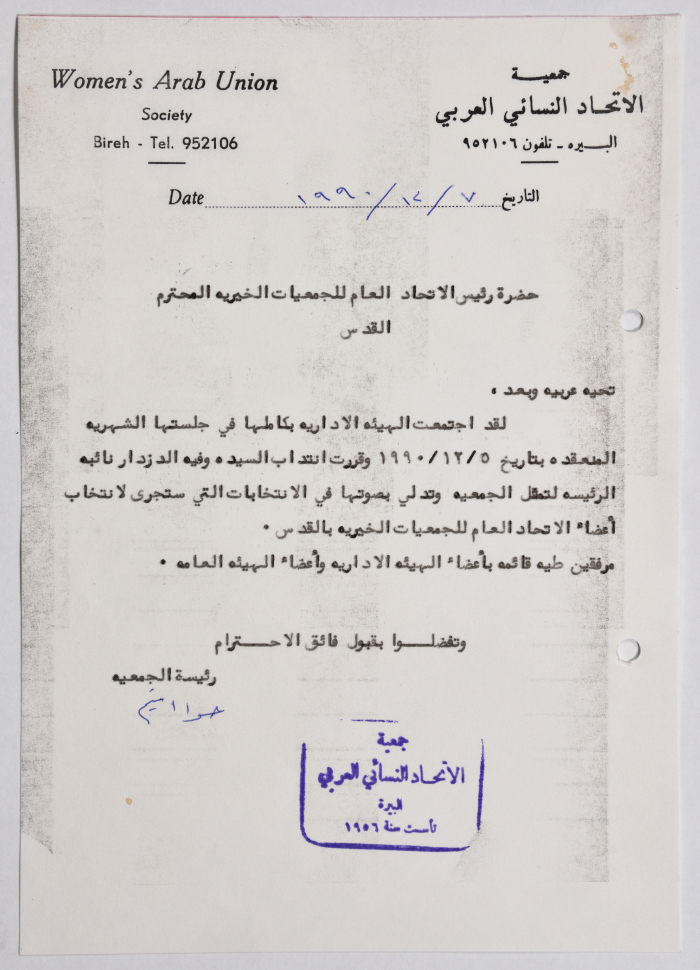 Women's Arab Union
Society
Bireh - Tel. 952106
جمعيـــة
الاتحـاد النسائي العربي
البـــيره ـ تلفون ٩٥٢١٠٦
Date ١٩٩٠/١٢/٧ التاريخ
حضرة رئيس الاتحاد العام للجمعيات الخيريه المحترم
القدس
تحيه عربيه وبعد ،
لقد اجتمعت الهيئه الاداريه بكاملها في جلستها الشهريه
المنعقده بتاريخ ١٩٩٠/١٢/٥ وقررت انتداب السيده وفيه الدزدار نائبه
الرئيسه لتمثل الجمعيه وتدلي بصوتها في الانتخابات التي ستجرى لانتخاب
أعضاء الاتحاد العام للجمعيات الخيريه بالقدس ٠
مرفقين طيه قائمه بأعضاء الهيئه الاداريه وأعضاء الهيئه العامه ٠
وتفضلــــوا بقبول فائق الاحـــترام
رئيسة الجمعيه
جمعية
الاتحاد النسائي العربي
البيرة
تأسست سنة ١٩٥٦